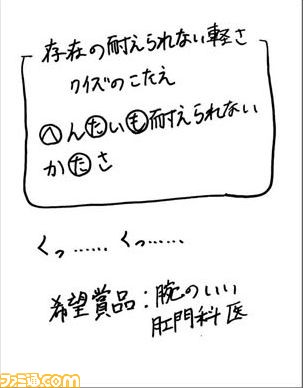 存在の耐えられない軽さ
クイズのこたえ
へんたいも耐えられない
かたさ
くっ…… くっ……
希望賞品：腕のいい
肛門科医
ファミ通.com